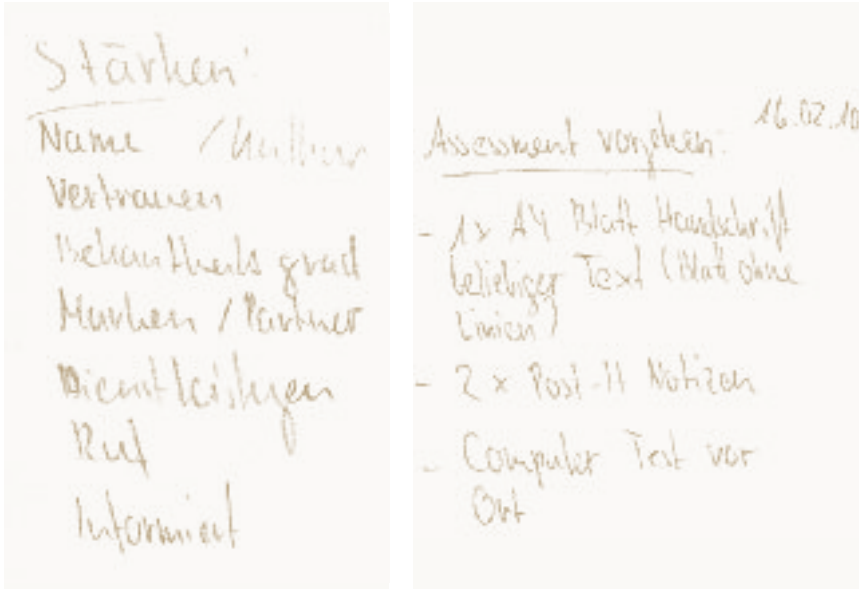 Stärken:
Name / Kultur
Vertrauen
Bekanntheitsgrad
Marken / Partner
Dienstleistungen
Ruf
Informiert
16.02.10
Assessment vorgehen:
- 1x A4 Blatt Handschrift
beliebiger Text (Blatt ohne
Linien)
- 2 x Post-It Notizen
- Computer Test vor
Ort